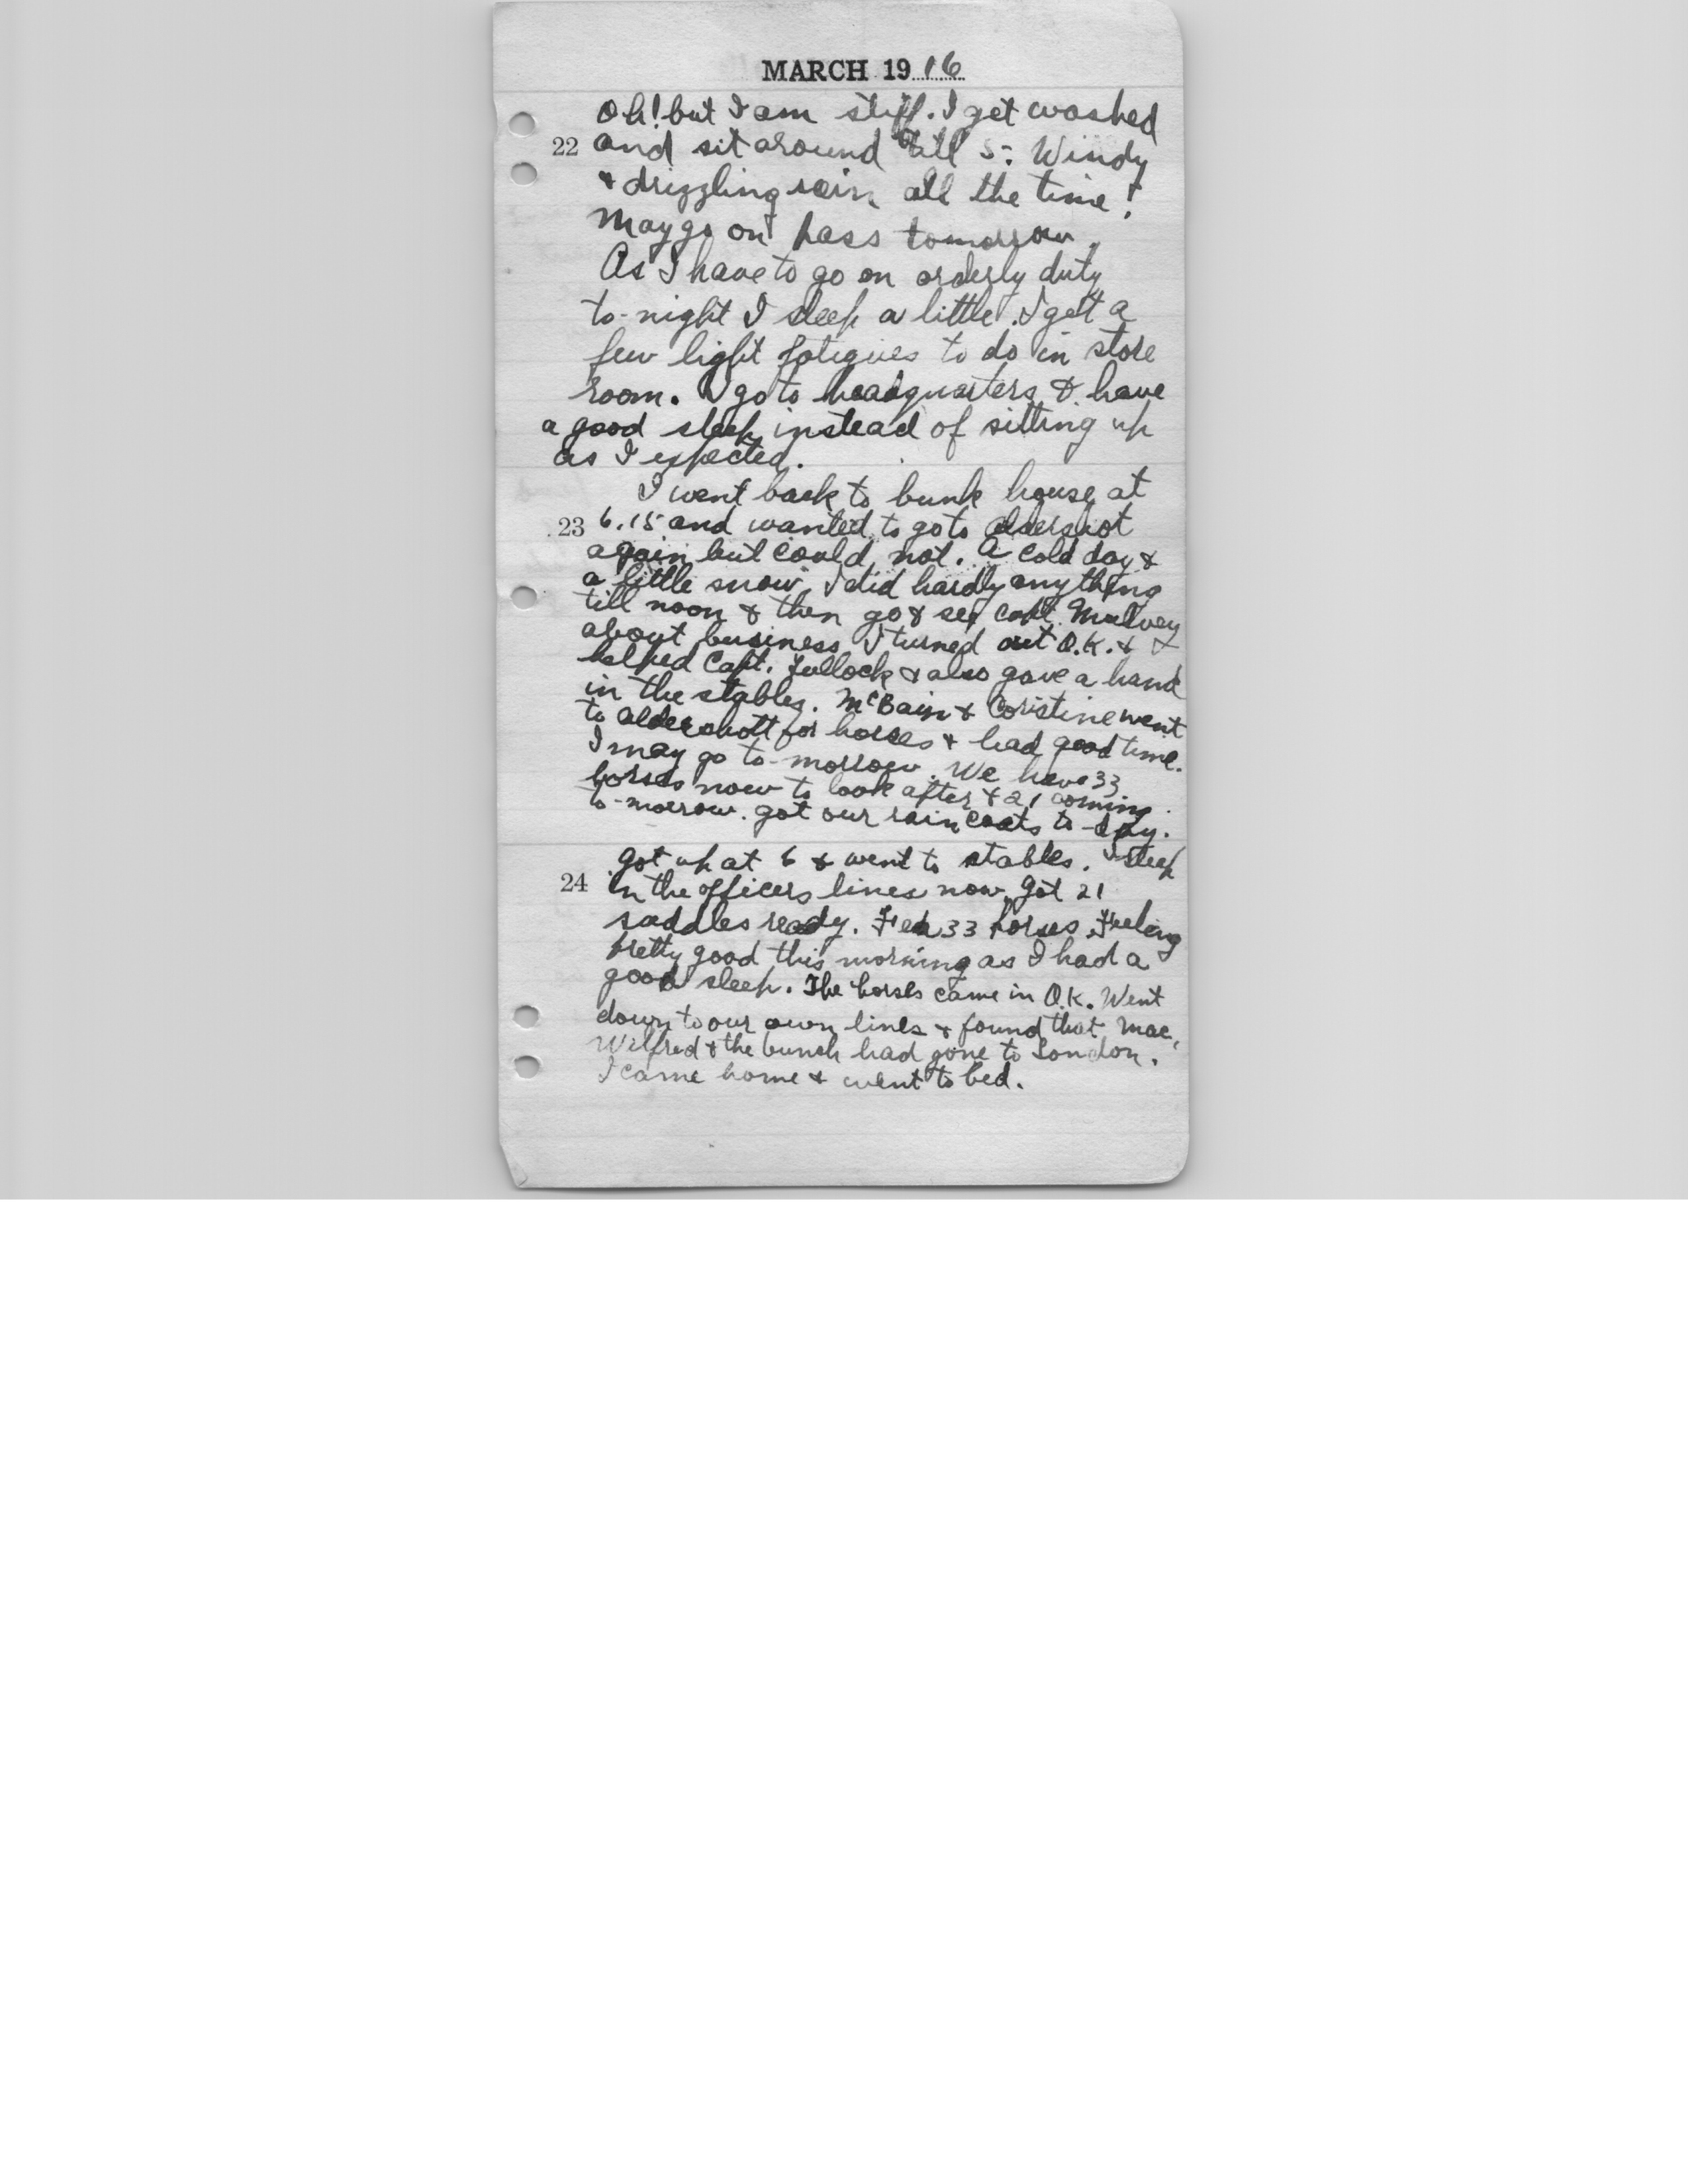 MARCH 1916
Oh! but I am stiff. I get washed
22 and sit around till 5: Windy
& drizzling rain all the time!
May go on pass tomorrow.
As I have to go on orderly duty
to-night I sleep a little. I get a
few light fatigues to do in store
room. I go to headquarters & have
a good sleep instead of sitting up
as I expected.
I went back to bunk house at
23 6.15 and wanted to go to aldershot
again but could not. A cold day &
a little snow. I did hardly anything
till noon & then go & see Capt. Mulvey
about business. I turned out O.K. & I
helped Capt. Tullock & also gave a hand
in the stables. McBain & Coristine went
to aldershott for horses & had good time.
I may go to-morrow. We have 33
horses now to look after & 21 coming
to-morrow. got our rain coats to-day.
got up at 6 & went to stables. I sleep
24 in the officers lines now. Got 21
saddles ready. Fed 33 horses. Feeling
pretty good this morning as I had a
good sleep. The horses came in O.K. Went
down to our own lines & found that Mac,
Wilfred & the bunch had gone to London.
I came home & went to bed.